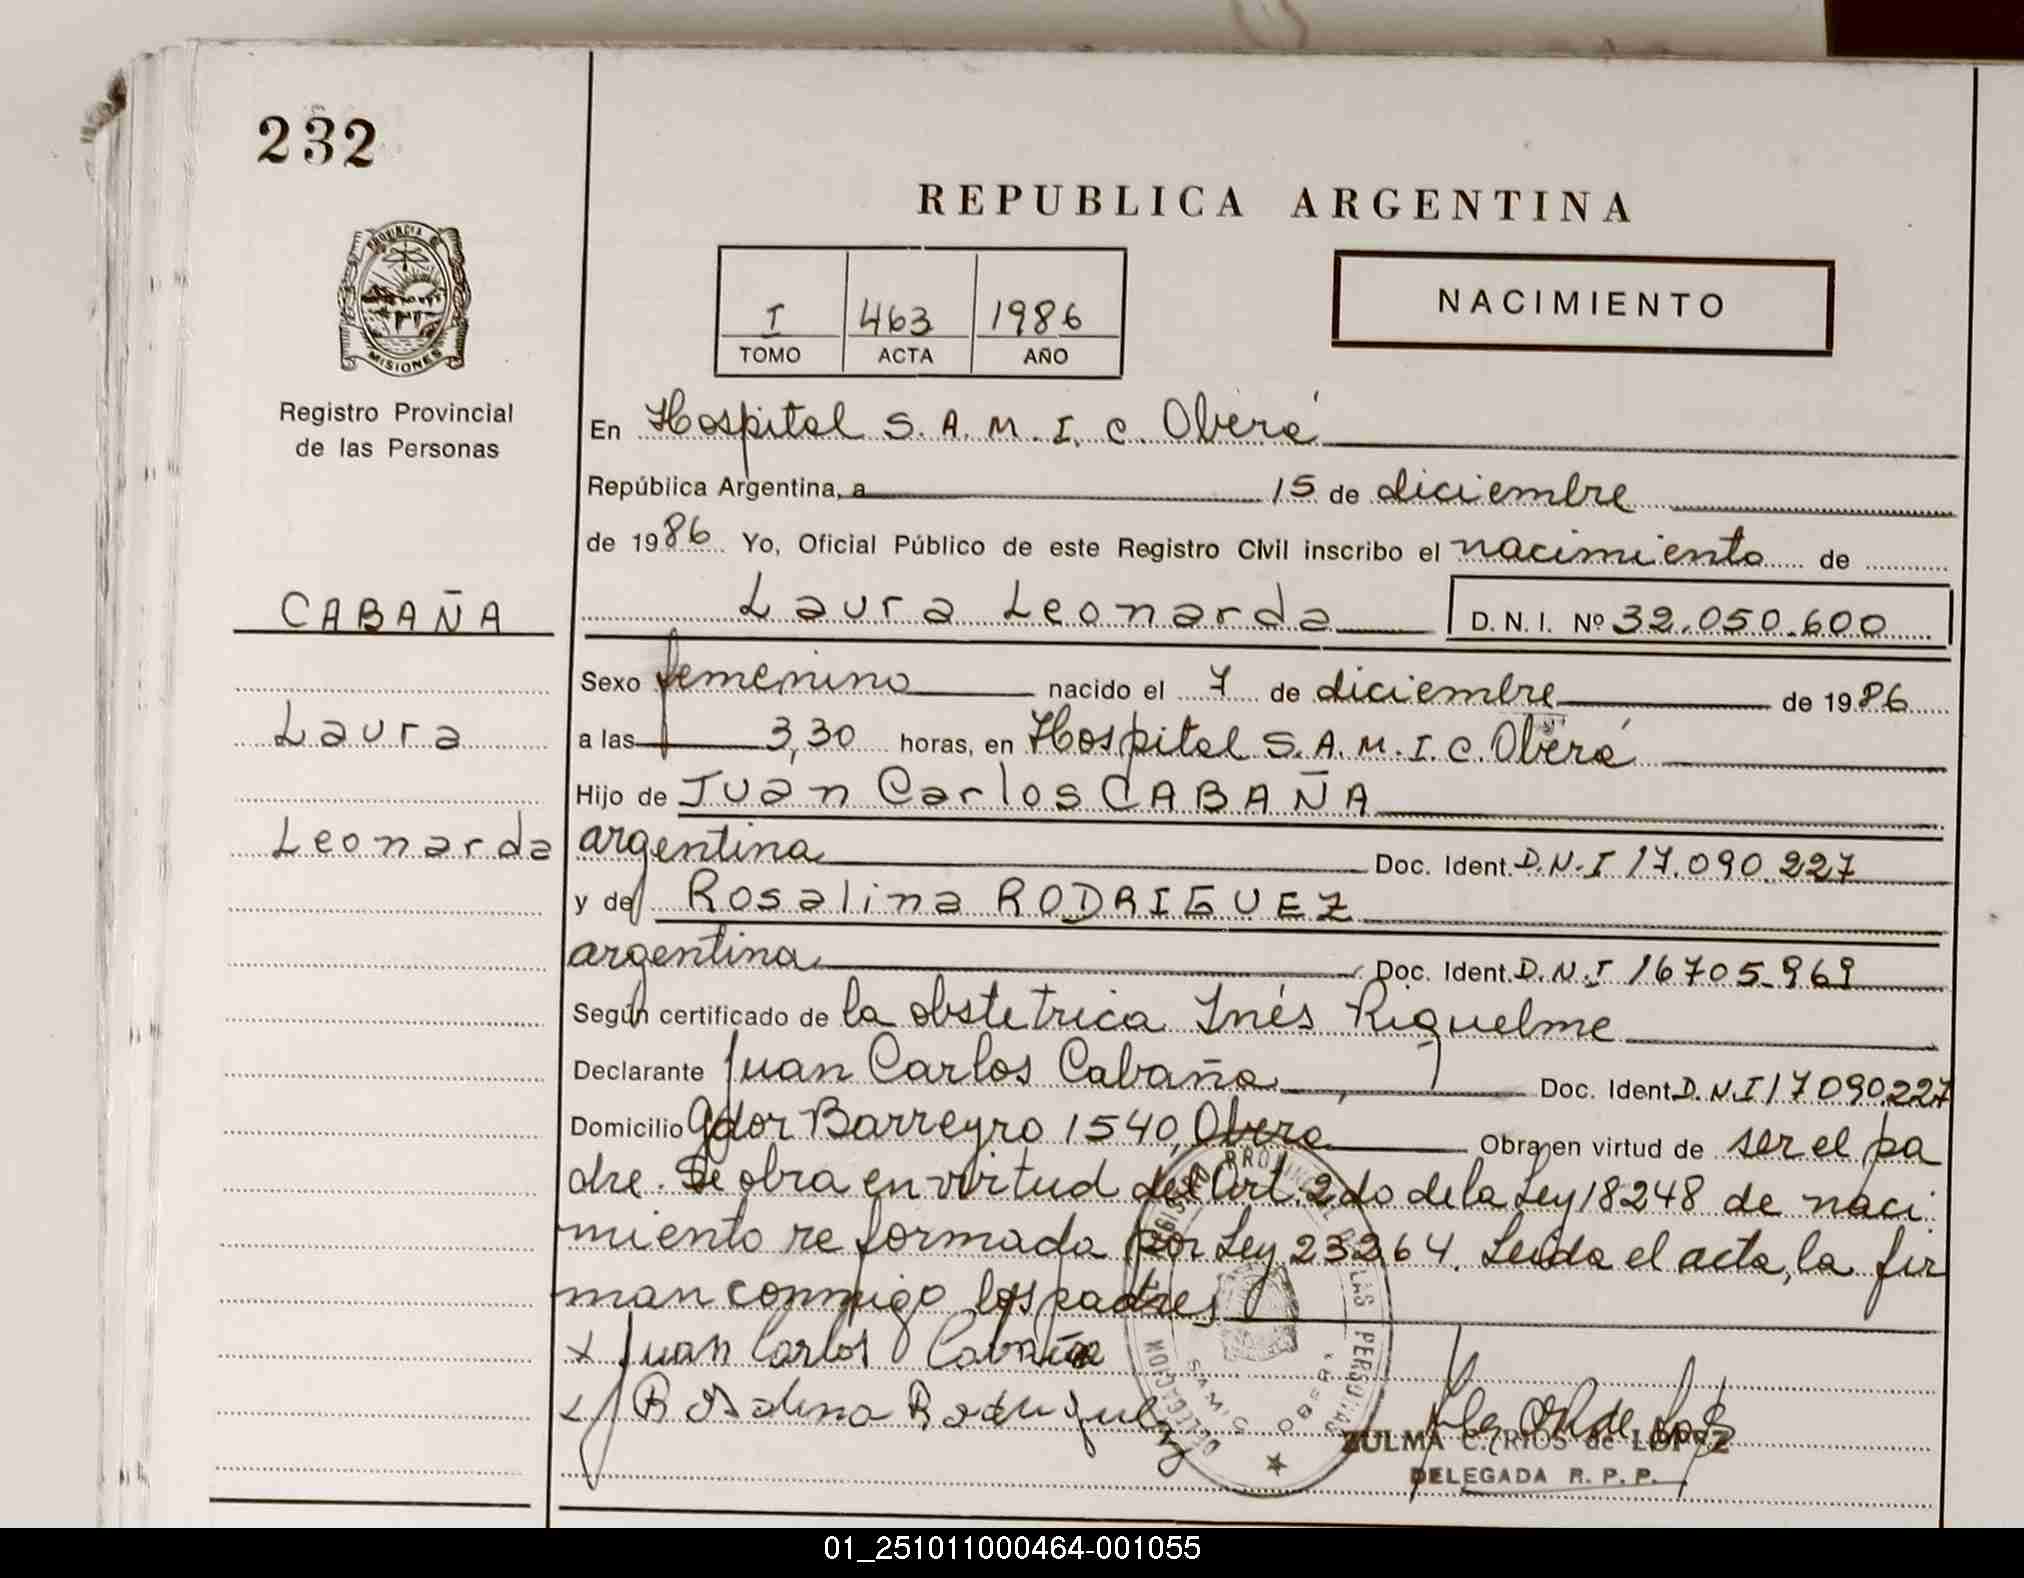 232
REPUBLICA ARGENTINA
PROVINCIA DE
MISIONES
Registro Provincial
de las Personas
I 463 1986
TOMO ACTA AÑO
NACIMIENTO
En Hospital S.A.M.I.C. Oberá
República Argentina, a 15 de diciembre
de 1986 Yo, Oficial Público de este Registro Civil inscribo el nacimiento de
CABAÑA
Laura Leonarda D.N.I. Nº 32.050.600
Sexo femenino nacido el 7 de diciembre de 1986
Laura
a las 3,30 horas, en Hospital S.A.M.I.C. Oberá
Hijo de Juan Carlos CABAÑA
Leonarda
argentina Doc. Ident. D.N.I 17.090.227
y de Rosalina RODRIGUEZ
argentina Doc. Ident. D.N.I 16705.969
Según certificado de la obstetrica Inés Riquelme
Declarante Juan Carlos Cabaña Doc. Ident. D.N.I 17090.227
Domicilio Gdor Barreyro 1540, Obera Obra en virtud de ser el pa
dre. Se obra en virtud del Art. 2do de la Ley 18248 de naci
miento reformada por Ley 23264. Leida el acta, la fir
man conmigo los padres
x Juan Carlos Cabaña
x Rosalina Rodriguez
ZULMA C. RIOS de LOPEZ
DELEGADA R. P. P.
01_251011000464-001055